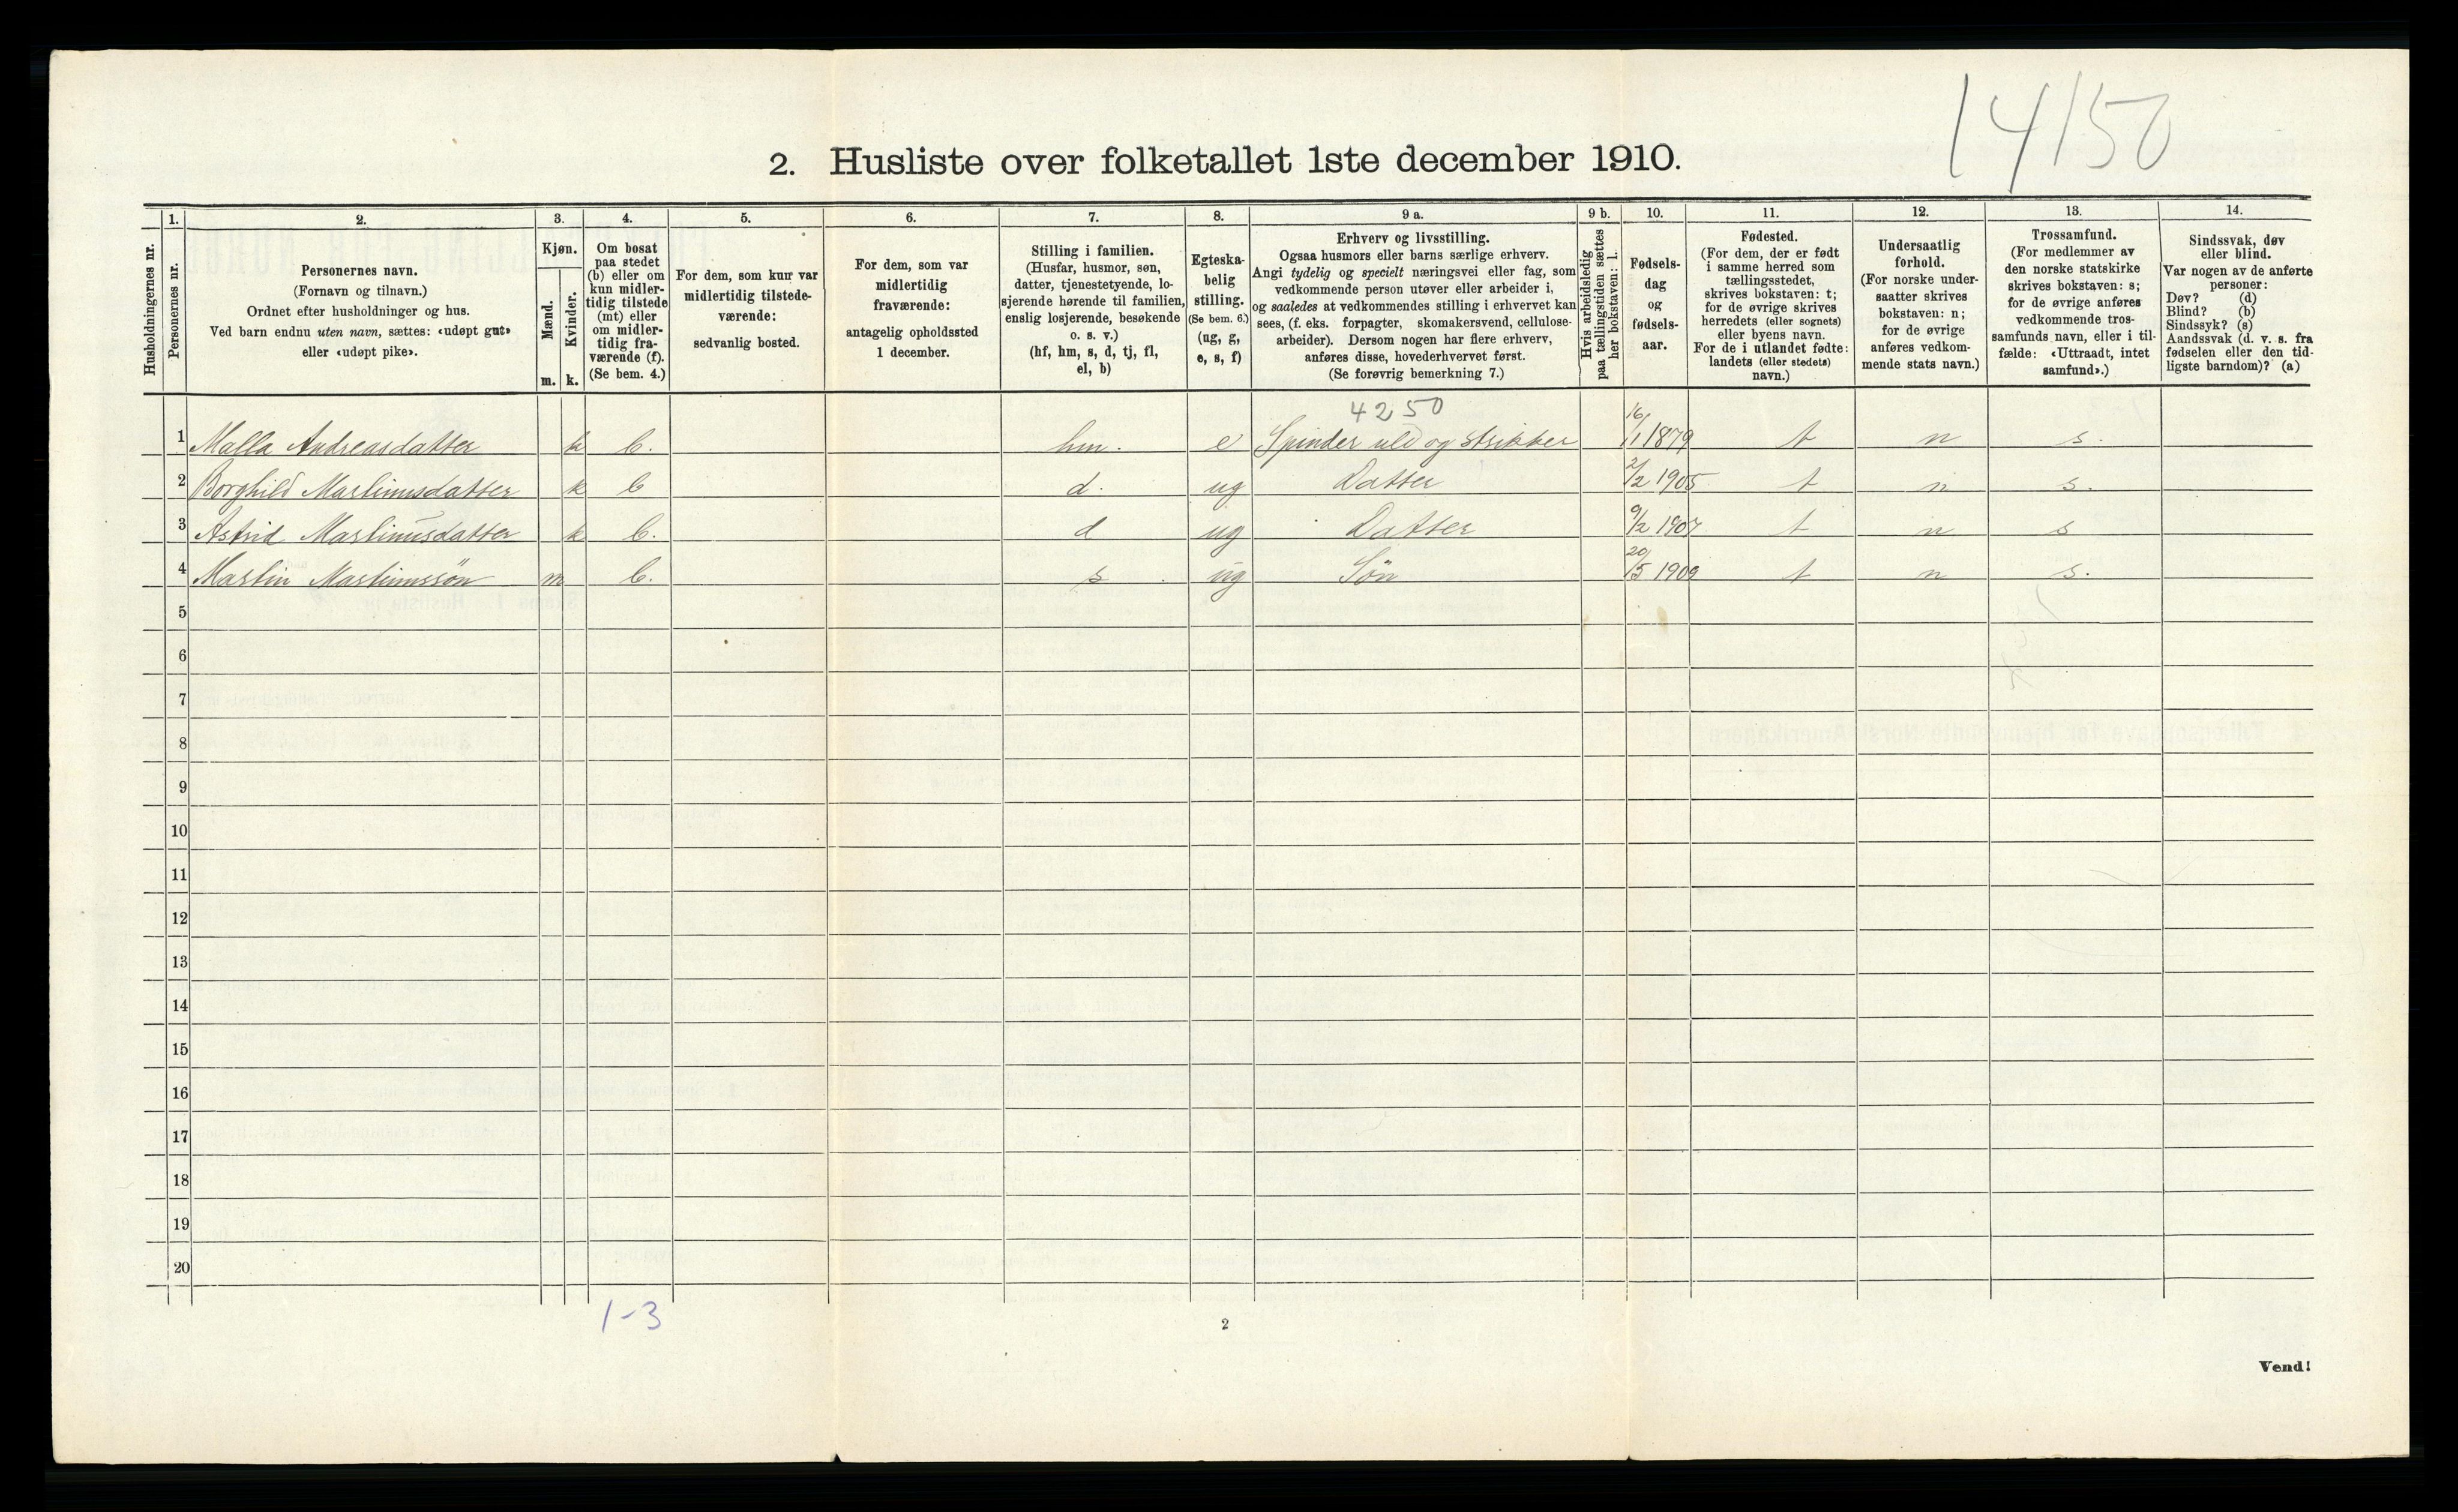 14150
2. Husliste over folketallet 1ste december 1910.
Husholdningernes nr.
1.
Personernes nr.
2.
Personernes navn.
(Fornavn og tilnavn.)
Ordnet efter husholdninger og hus.
Ved barn endnu uten navn, sættes: «udøpt gut»
eller «udøpt pike».
3.
Kjøn.
Mænd.
m.
Kvinder.
k.
4.
Om bosat
paa stedet
(b) eller om
kun midler-
tidig tilstede
(mt) eller
om midler-
tidig fra-
værende (f).
(Se bem. 4.)
5.
For dem, som kun var
midlertidig tilstede-
værende:
sedvanlig bosted.
6.
For dem, som var
midlertidig
fraværende:
antagelig opholdssted
1 december.
7.
Stilling i familien.
(Husfar, husmor, søn,
datter, tjenestetyende, lo-
sjerende hørende til familien,
enslig losjerende, besøkende
o. s. v.)
(hf, hm, s, d, tj, fl,
el, b)
8.
Egteska-
belig
stilling.
(Se bem. 6.)
(ug, g,
e, s, f)
9 a.
Erhverv og livsstilling.
Ogsaa husmors eller barns særlige erhverv.
Angi tydelig og specielt næringsvei eller fag, som
vedkommende person utøver eller arbeider i,
og saaledes at vedkommendes stilling i erhvervet kan
sees, (f. eks. forpagter, skomakersvend, cellulose-
arbeider). Dersom nogen har flere erhverv,
anføres disse, hovederhvervet først.
(Se forøvrig bemerkning 7.)
9 b.
Hvis arbeidsledig
paa tællingstiden sættes
her bokstaven: l.
10.
Fødsels-
dag
og
fødsels-
aar.
11.
Fødested.
(For dem, der er født
i samme herred som
tællingsstedet,
skrives bokstaven: t;
for de øvrige skrives
herredets (eller sognets)
eller byens navn.
For de i utlandet fødte:
landets (eller stedets)
navn.)
12.
Undersaatlig
forhold.
(For norske under-
saatter skrives
bokstaven: n;
for de øvrige
anføres vedkom-
mende stats navn.)
13.
Trossamfund.
(For medlemmer av
den norske statskirke
skrives bokstaven: s;
for de øvrige anføres
vedkommende tros-
samfunds navn, eller i til-
fælde: «Uttraadt, intet
samfund».)
14.
Sindssvak, døv
eller blind.
Var nogen av de anførte
personer:
Døv? (d)
Blind? (b)
Sindssyk? (s)
Aandssvak (d. v. s. fra
fødselen eller den tid-
ligste barndom)? (a)
4250
1 Malla Andreasdatter k b. hm. e Spinder uld og strikker 16/11 1879 t n s.
2 Borghild Martinusdatter k b d. ug Datter 2/2 1905 t n s.
3 Astrid Martinusdatter k b. d ug Datter 9/2 1907 t n s
4 Martin Martinussön m b. s ug Sön 20/5 1909 t n s.
5
6
7
8
9
10
11
12
13
14
15
16
17
18
19
20
1-3
2
Vend!